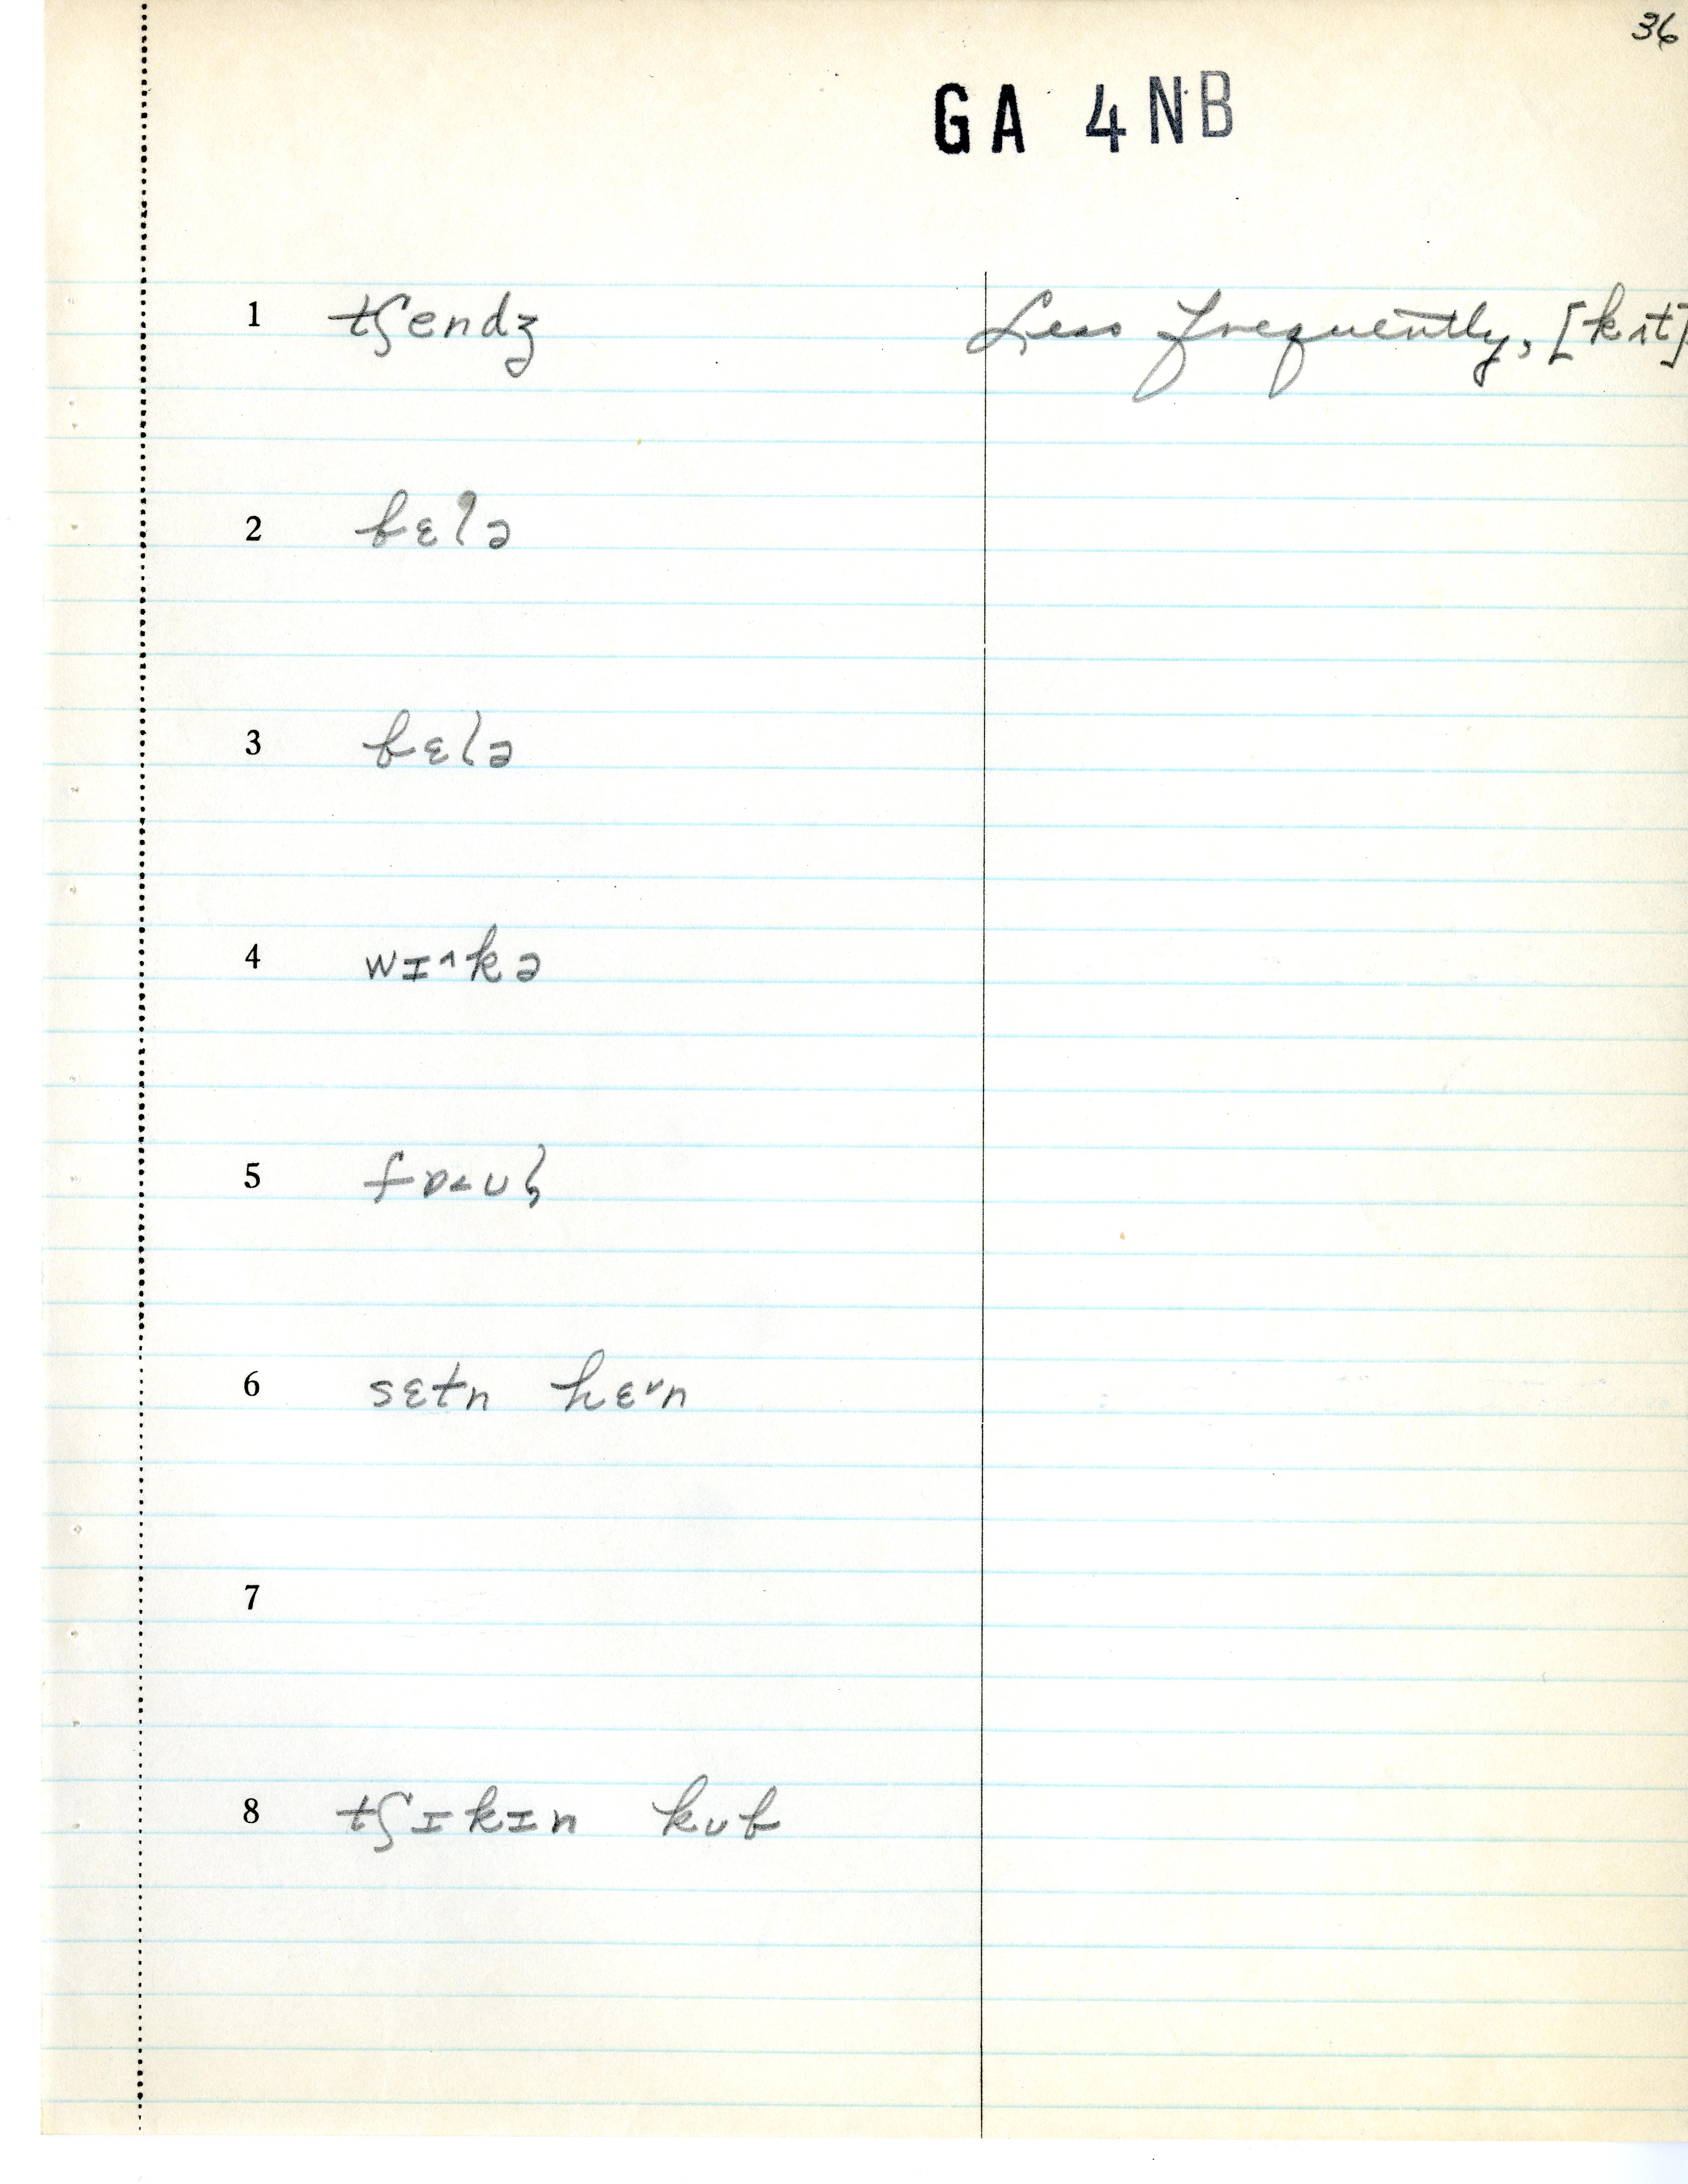 36
GA 4NB
1 tʃendʒ Less frequently, [kʌt]
2 bɛlə
3 bɛlə
4 wɪ˄kə
5 fɒ˂ʊɫ
6 sɛtn hɛ˅n
7
8 tʃɪkɪn kub